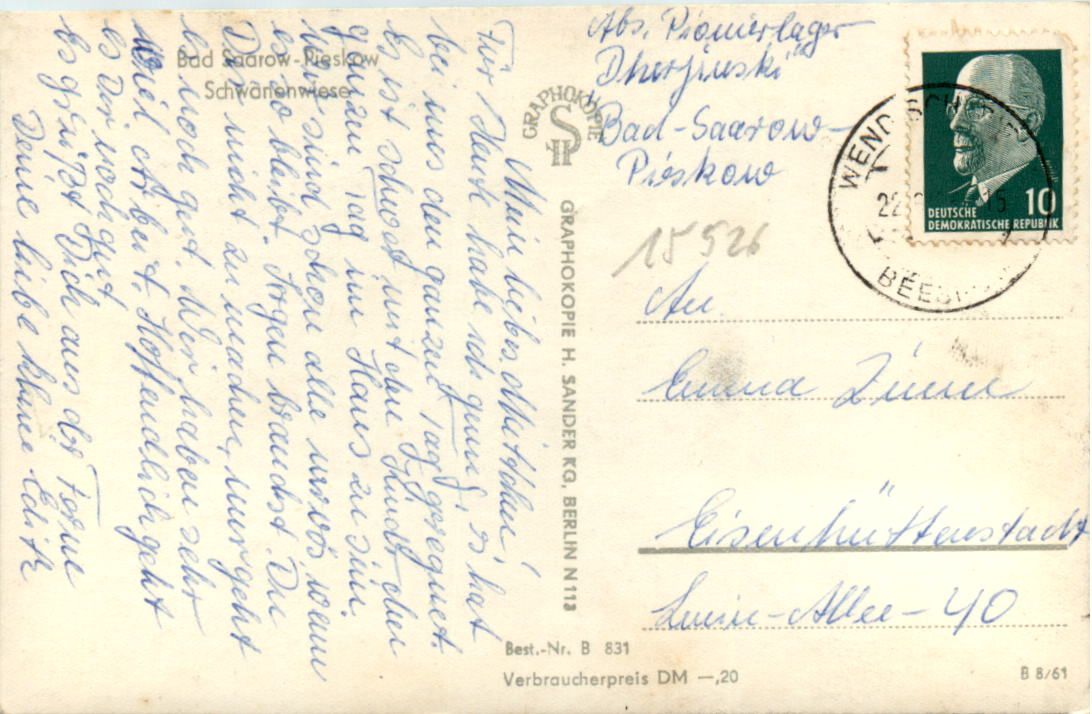 Bad Saarow-Pieskow
Schwanenwiese
Mein liebes Muttchen!
Für Heute habe ich genug, es hat
bei uns den ganzen Tag geregnet.
Es ist schwer mit den Kindern den
ganzen Tag im Haus zu sein.
Wir sind schon alle nervös, wenn
es so bleibt. Sorgen brauchst Du
Dir nicht zu machen, uns geht
es noch gut. Wir haben sehr
viel Arbeit. Hoffendlich geht
es Dir noch gut.
Es grüßt Dich aus der Ferne
Deine liebe kleine Edith
GRAPHOKOPIE
GRAPHOKOPIE H. SANDER KG, BERLIN N 113
Abs. Pionierlager
Dherjinski
Bad-Saarow-
Pieskow
15526
WENDISCH
22
15
BEES
10
DEUTSCHE
DEMOKRATISCHE REPUBLIK
An
Emma Zimm
Eisenhüttenstadt
Lenin-Allee-40
Best.-Nr. B 831
Verbraucherpreis DM —,20
B 8/61